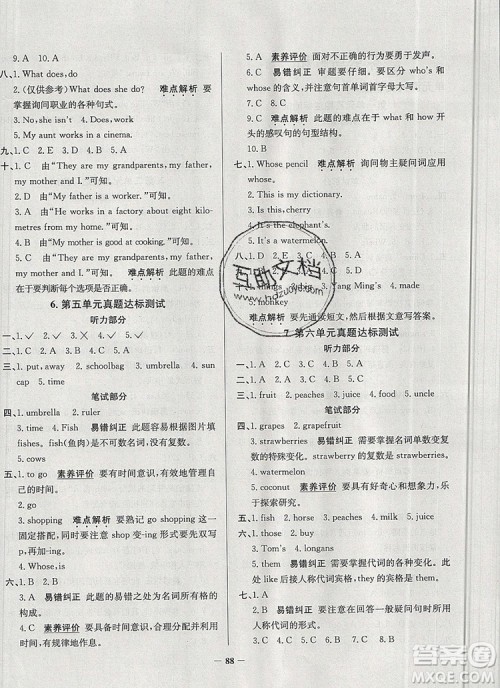 9. A  10. A
八、1. What does, do
2. (仅供参考) What does she do?  难点解析  要
掌握询问职业的各种句式。
3. No, she isn't  4. Does, work
5. My aunt works in a cinema.
九、1. C  2. D  3. E  4. B  5. A
十、1. C  由“They are my grandparents, my father,
my mother and I.”可知。
2. D  由“My father is a worker.”可知。
3. D  由“He works in a factory about eight kilo-
metres from my home.”可知。
4. B  由“My mother is good at cooking.”可知。
5. C  由“They are my grandparents, my father,
my mother and I.”可知。  难点解析  此题的难点
在于要判断每个选项是否正确。
6. 第五单元真题达标测试
听力部分
一、1. ✓  2. ✓  3. ✓  4. ×  5. ×
二、1. put, away  2. schoolbag  3. umbrella  4. sun
cap  5. time
笔试部分
四、1. umbrella  2. ruler
3. time  4. fishes  易错纠正  根据图片填
fishes。fish(鱼肉)是不可数名词,没有复数。
5. cows
五、1. to go  素养评价  要有时间意识,有效地管理自
己的时间。
2. go shopping  难点解析  要熟记 go shopping 这一
固定搭配,并掌握动词 shop 变-ing 形式要先双写
p,再加-ing。
4. Whose, is
六、1. A  2. B  3. B  易错纠正  此题的易错处是名词所有格的
构成。
4. C  素养评价  要具备时间意识,并合理分配并
利用时间,有规律地作息。
5. A  素养评价  面对不正确的行为要勇于发声。
6. C  易错纠正  审题要仔细。要区分 who's 和
whose 的含义,并注意句首单词首字母大写。
9. C  难点解析  此题的难点在于 what 和 how 开
头的感叹句的句型结构。
10. B
七、1. Whose pencil  难点解析  询问物主疑问词应用
whose。
2. This is my dictionary.
3. Is this, cherry
4. It's the elephant's.
5. It's a watermelon.
3. bag  4. Yang Ming's
5. monkey
难点解析  要先通读短文,然后根据文意写答案。
7. 第六单元真题达标测试
听力部分
一、1. fruit  2. peaches  3. juice  4. aunt  5. seven
笔试部分
四、1. grapes  2. grapefruit
3. strawberries  易错纠正  要掌握名词单数变复数
的特殊变化。strawberry 的复数是 strawberries。
4. watermelon
5. coconut  素养评价  要有好奇心和想象力,乐于
探索研究。
五、1. fish  2. horse  3. panda  4. milk  5. juice
六、1. those  2. buy
3. Tom's  4. longans
5. him  易错纠正  要掌握人称代词的各种变化。
此处 like 后接人称代词宾格,he 的宾格是 him。
七、1. C  2. B  3. C
4. B  易错纠正  要注意在回答一般疑问句时要用
代词代替句中的主语。
5. B  6. C  7. C  8. C  9. B  10. C
88
互助文档
www.hdzuoye.com
作业帮
MXQE.COM